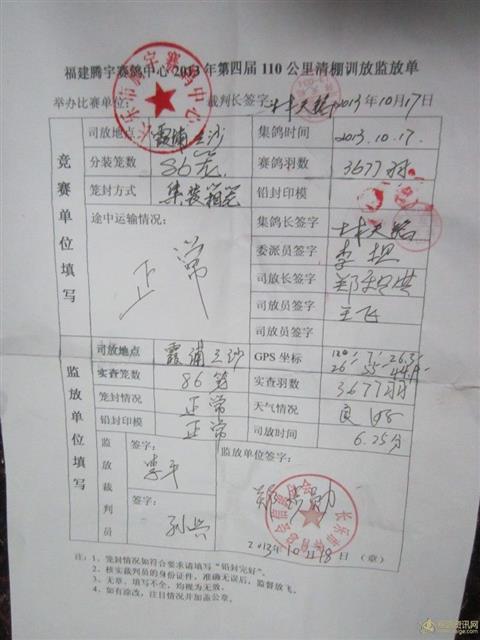 福建腾宇赛鸽中心2013年第四届110公里清棚训放监放单
举办比赛单位: 裁判长签字: 2013年10月17日
竞赛单位填写
司放地点 霞浦三沙 集鸽时间 2013.10.17.
分装笼数 86笼 赛鸽羽数 3677羽
笼封方式 集装箱笼 铅封印模
途中运输情况: 正常
集鸽长签字
委派员签字 李坦
司放长签字
司放员签字 王飞
司放员签字
监放单位填写
司放地点 霞浦三沙 GPS 坐标
实查笼数 86笼 实查羽数 3677羽
笼封情况 正常 天气情况 良好
铅封印模 正常 司放时间 6.25分
监放裁判员
签字: 李平
签字: 孙兴
监放单位签字:
2013年10月18日 (章)
注: 1、笼封情况如符合要求请填写“铅封完好”。
2、核实裁判员的身份证件,准确无误后,监督放飞。
3、无章、填写不全,均视为无效。
4、如有涂改,注日情况并加盖公章。
长乐市腾宇赛鸽中心